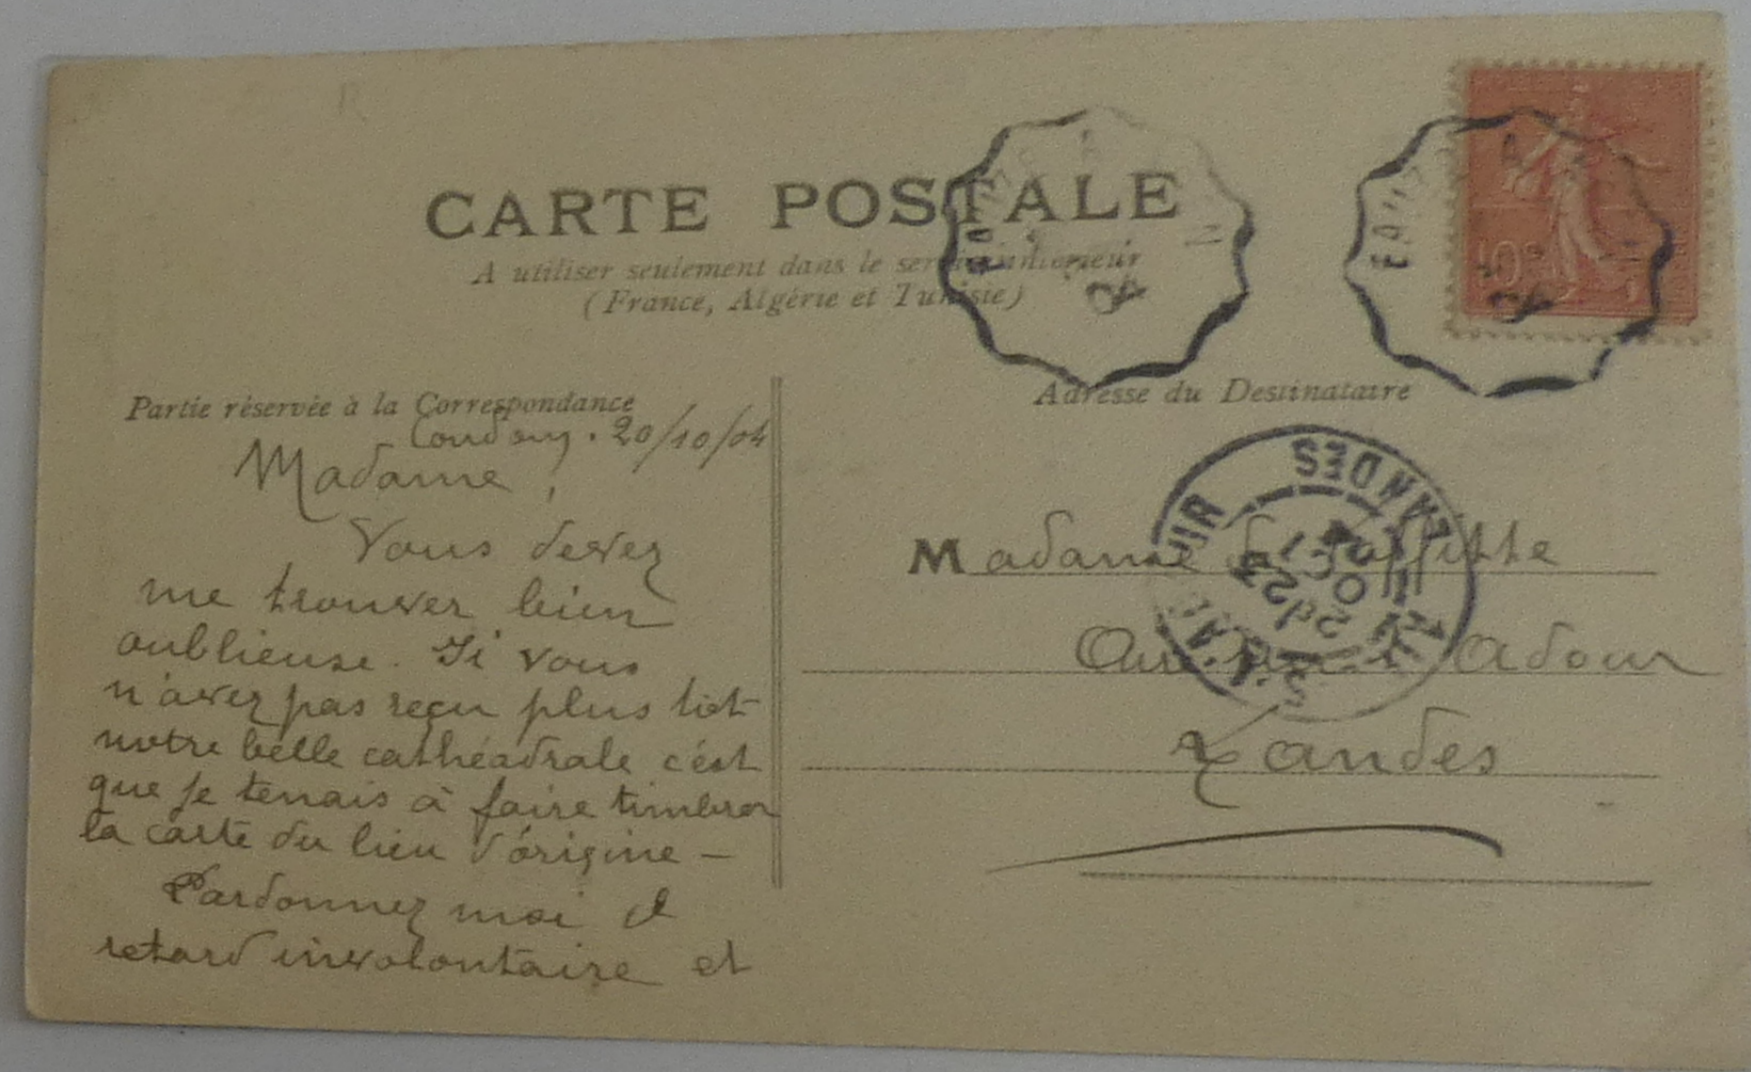 CARTE POSTALE
A utiliser seulement dans le service intérieur
(France, Algérie et Tunisie)
Partie réservée à la Correspondance
Adresse du Destinataire
20/10/04
Madame,
Vous devez
me trouver bien
oublieuse. Si vous
n'avez pas reçu plus tôt
notre belle cathéadrale c'est
que je tenais à faire timbrer
la carte du lieu d'origine —
Pardonnez moi ce
retard involontaire et
Madame de Laffitte
Adour
Landes
LANDES
23
OCT
04
10